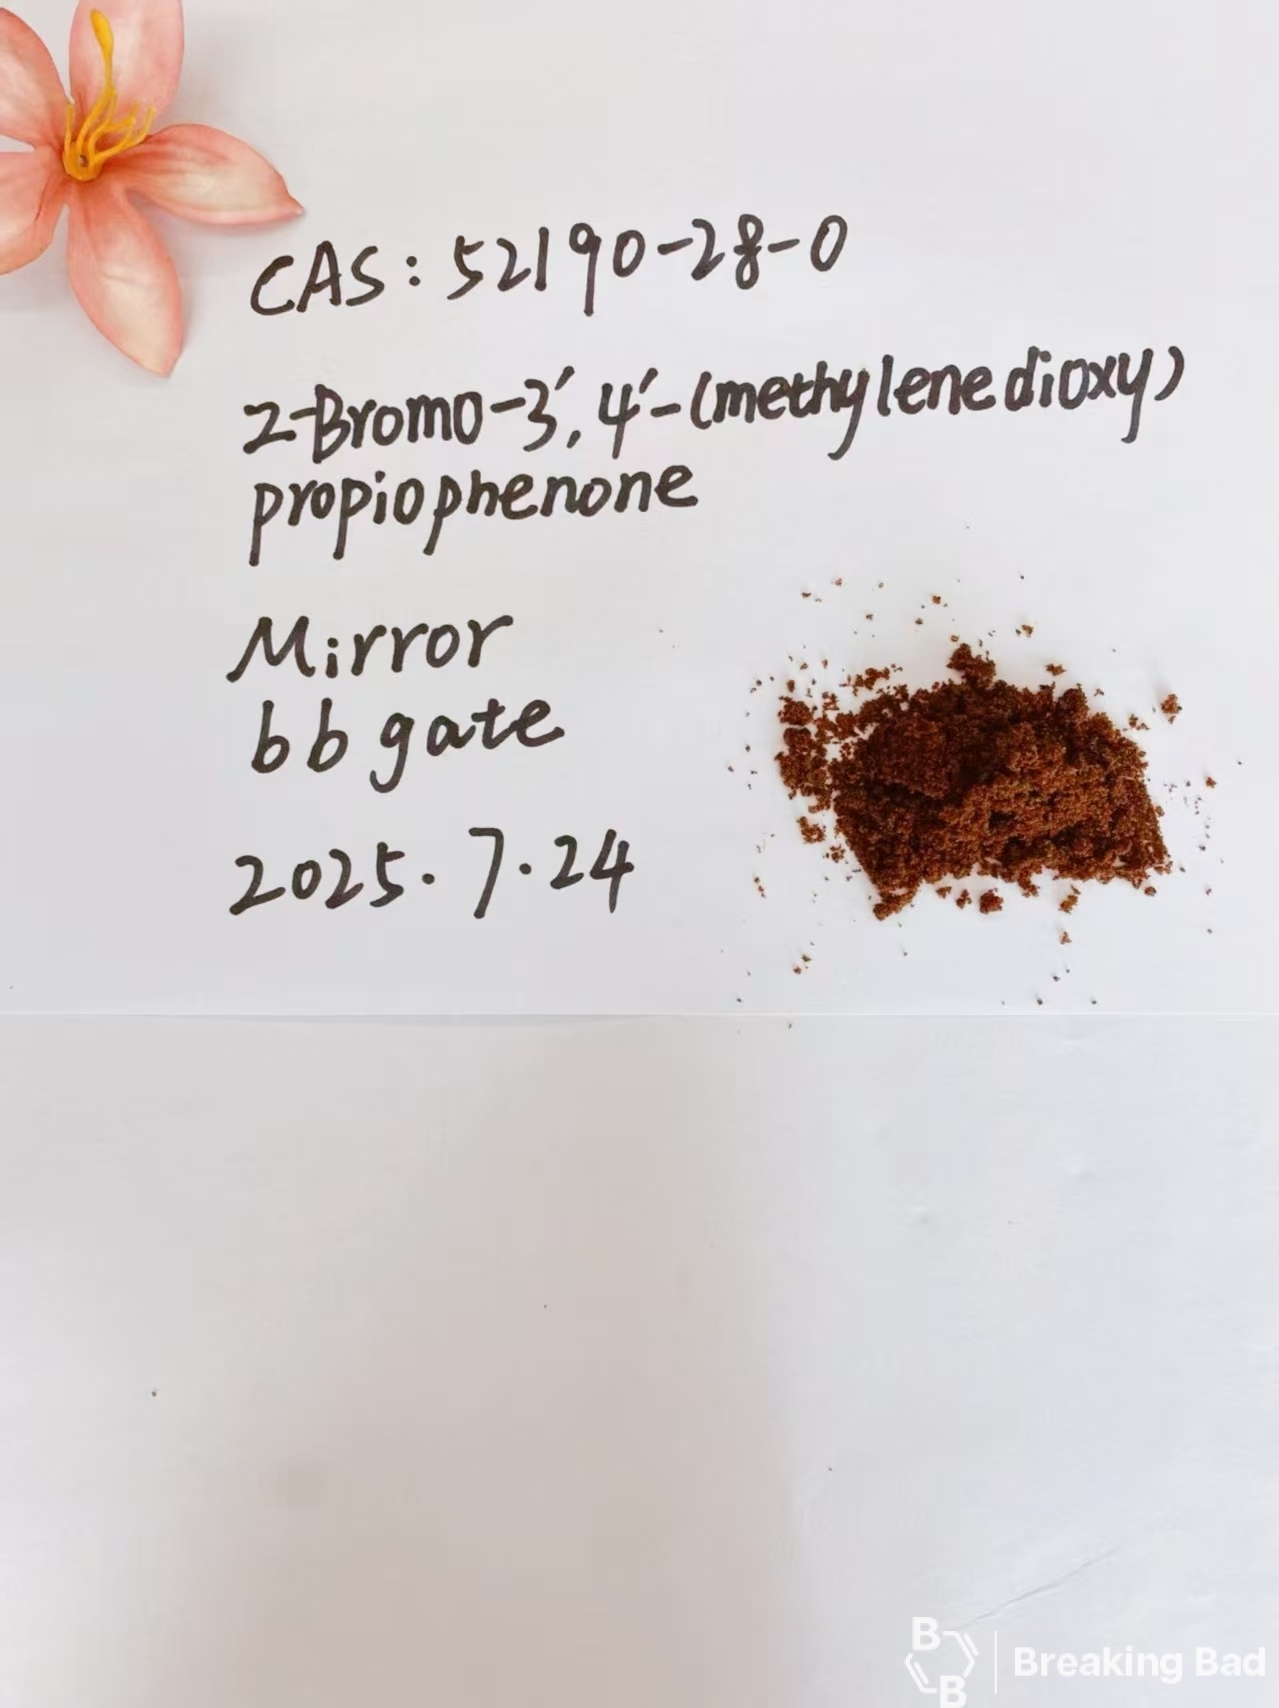 CAS: 52190-28-0
2-Bromo-3',4'-(methylenedioxy)
propiophenone
Mirror
bb gate
2025.7.24
B
B
Breaking Bad